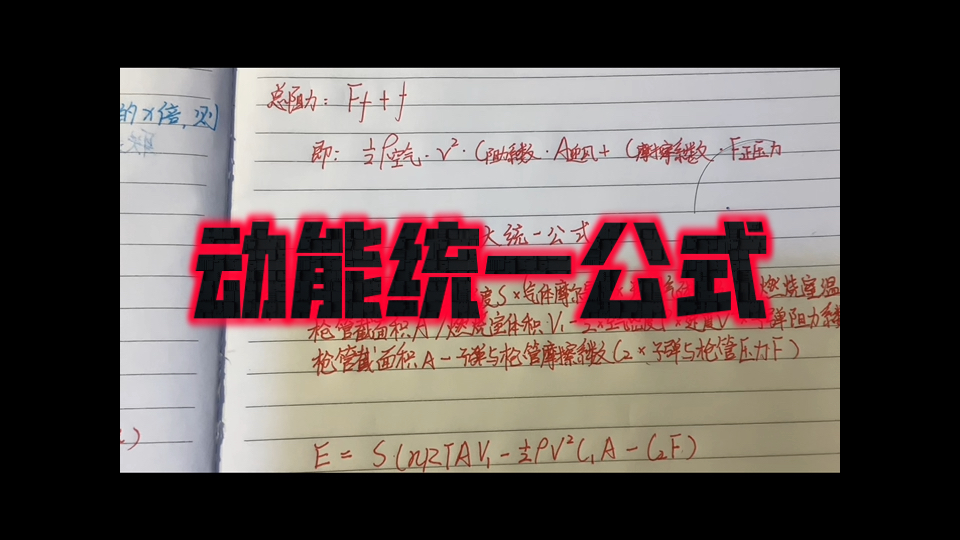 的x倍,则
总阻力: Ff + f
即: ½ρ空气·v²·C阻力系数·A迎风 + C摩擦系数·F正压力
大统一公式
动能统一公式
度S×(气体摩尔 燃烧室温
枪管截面积A/燃烧室体积V₁-½×空气密度ρ×速度V²×子弹阻力系数
枪管截面积A-子弹与枪管摩擦系数(2×子弹与枪管压力F)
E = S(nRTAV₁-½ρV²C₁A-C₂F)